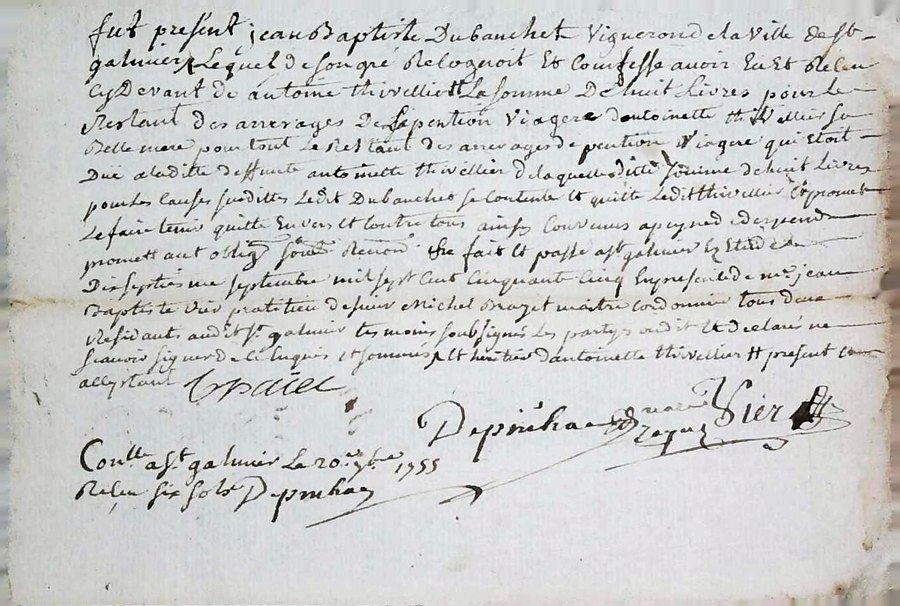 fut présent jean Baptiste Dubanchet Vigneron de la Ville de st
galmier Lequel de son gré Relogeoit Et Comfesse avoir Eu Et Reseu
Cy Devant de antoine thivellier La Somme De huit Livres pour Le
Restant des arrerages De la pention Viagere dantoinette thivellier sa
Belle mere pour tout Le Restant des arrerages de pention Viagere qui Etoit
Due a laditte deffunte antoinette thivellier de laquelle ditte somme de huit Livres
pour les Causes susdittes Ledit Dubanchet se Contente Et quitte Ledit thivellier Et promet
Le faire tenir quitte Envers Et Contre tous ainsy Convenus a peyne de despend
promettant oblig Renon fait Et passé a st galmier Es Etude Le
Dix septieme septembre mil sept Cent Cinquant Cinq En presence de mr jean
Baptiste Vier pratitien de sieur Michel maitre Cordonnier tous deux
Residants audit st galmier temoins soubsignés Les partys ont dit Et declaré ne
scavoir signer de Ce Enquis Et sommés Et heritier dantoinette thivellier present Et
aCeptant
Depinhac Vier
Conlle a st galmier Le 20e 7bre 1755
Reseu six sols Depinhac